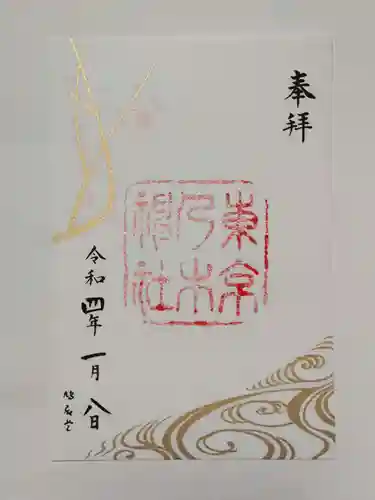 奉拝
東京
乃木
神社
令和四年一月八日